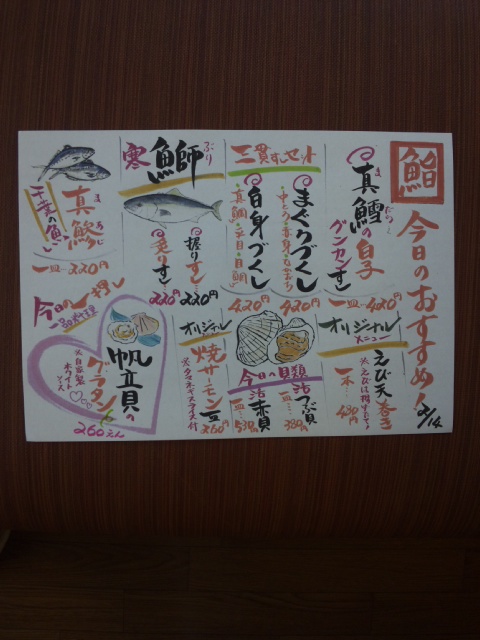 鮨
今日のおすすめ!
2/14
真鱈の白子
まだら
グンカンすし
一皿…420円
三貫すしセット
まぐろづくし
420円
白身づくし
・真鯛・平目・目鯛
420円
寒鰤
ぶり
握りすし…220円
炙りすし
220円
千葉の魚
真鯵
まあじ
一皿…220円
オリジナル
メニュー
えび天巻き
一本…
今日の貝類
活つぶ貝
一皿…380円
活赤貝
一皿…530円
オリジナル
焼サーモン
※タマネギスライス付
260円
今日の一押し
一品料理
帆立貝の
グラタン
※自家製
ホワイト
ソース
260えん